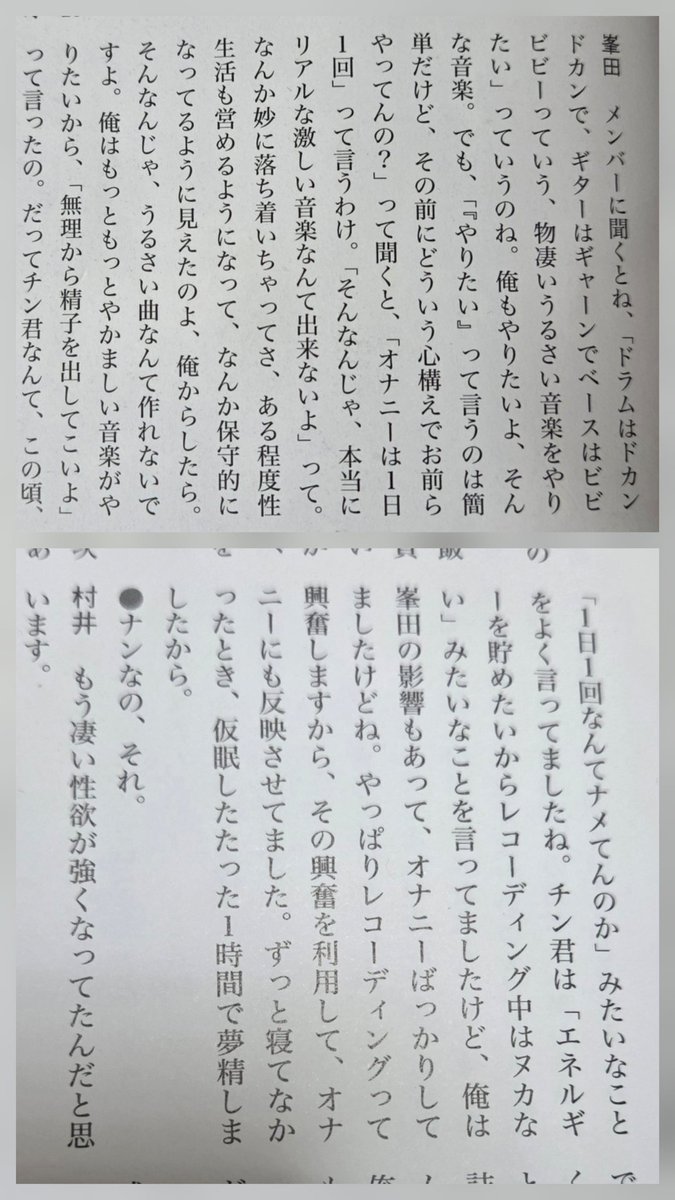 峯田　メンバーに聞くとね、「ドラムはドカン
ドカンで、ギターはギャーンでベースはビビ
ビビーっていう、物凄いうるさい音楽をやり
たい」っていうのね。俺もやりたいよ、そん
な音楽。でも、「『やりたい』って言うのは簡
単だけど、その前にどういう心構えでお前ら
やってんの？」って聞くと、「オナニーは1日
1回」って言うわけ。「そんなんじゃ、本当に
リアルな激しい音楽なんて出来ないよ」って。
なんか妙に落ち着いちゃってさ、ある程度性
生活も営めるようになって、なんか保守的に
なってるように見えたのよ、俺からしたら。
そんなんじゃ、うるさい曲なんて作れないで
すよ。俺はもっともっとやかましい音楽がや
りたいから、「無理から精子を出してこいよ」
って言ったの。だってチン君なんて、この頃、
「1日1回なんてナメてんのか」みたいなこと
をよく言ってましたね。チン君は「エネルギ
ーを貯めたいからレコーディング中はヌカな
い」みたいなことを言ってましたけど、俺は
峯田の影響もあって、オナニーばっかりして
ましたけどね。やっぱりレコーディングって
興奮しますから、その興奮を利用して、オナ
ニーにも反映させてました。ずっと寝てなか
ったとき、仮眠したたった1時間で夢精しま
したから。
●ナンなの、それ。
村井　もう凄い性欲が強くなってたんだと思
います。